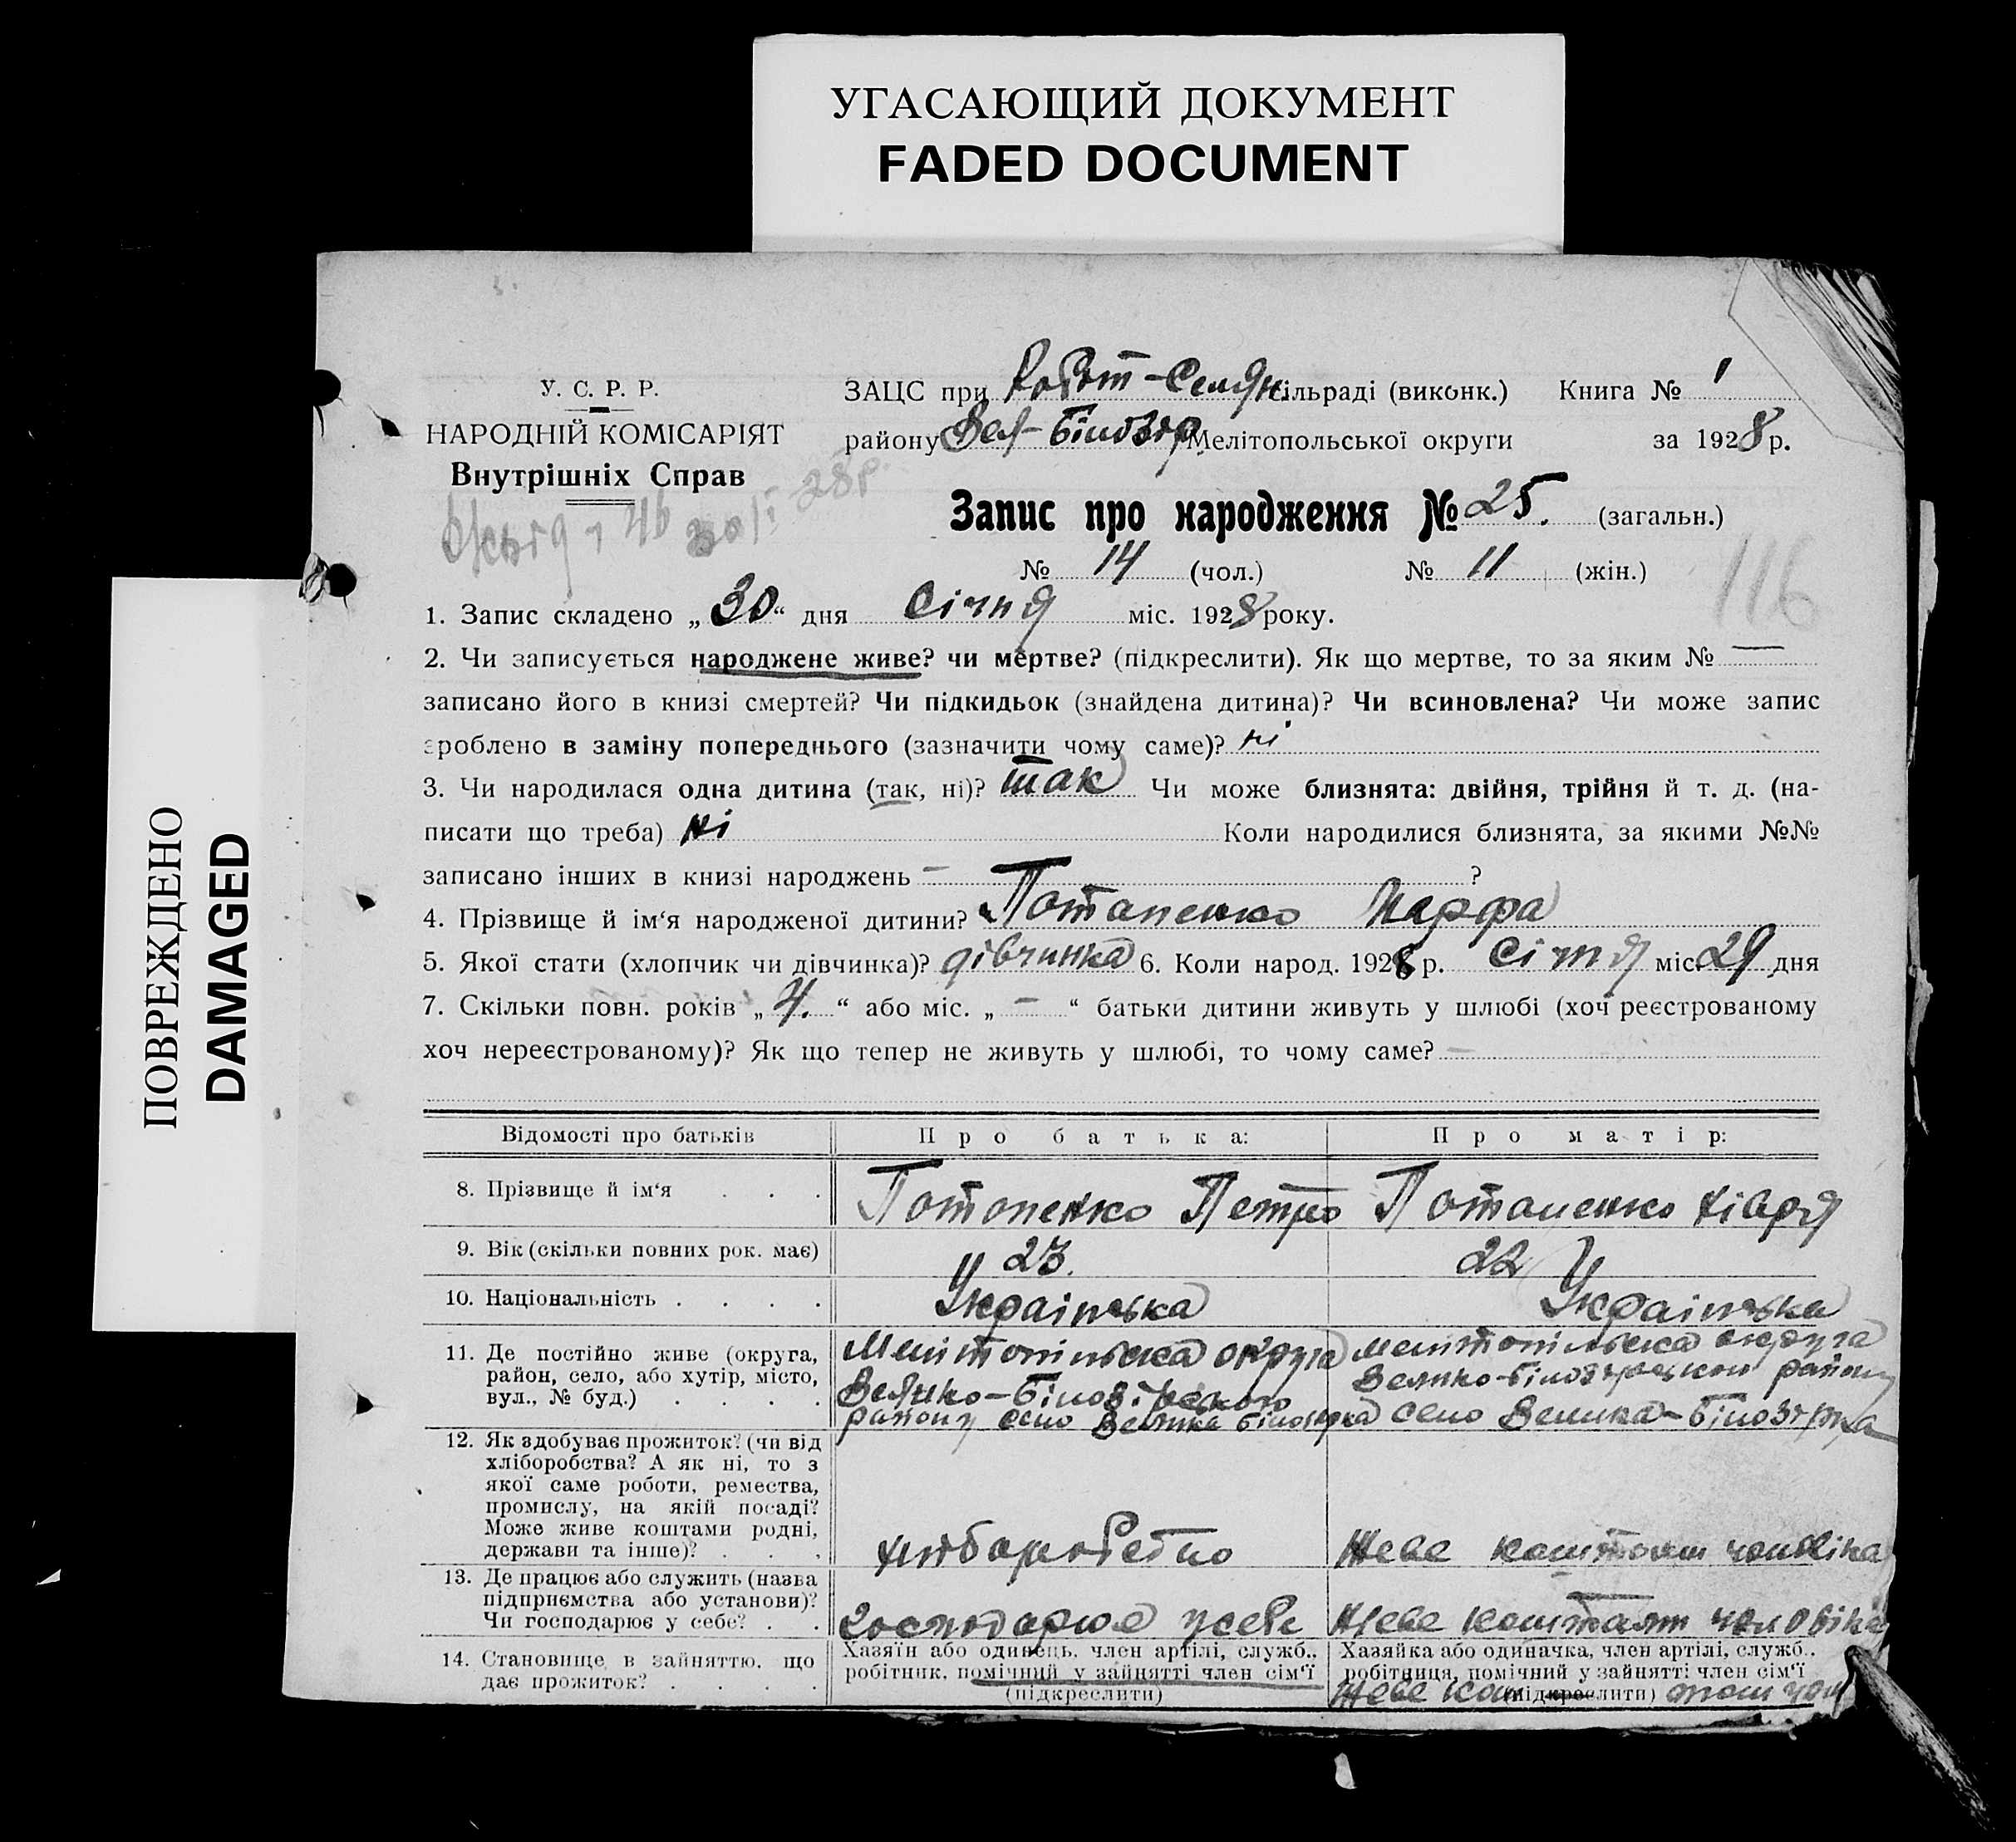 УГАСАЮЩИЙ ДОКУМЕНТ
FADED DOCUMENT
ПОВРЕЖДЕНО
DAMAGED
У. С. Р. Р.
НАРОДНІЙ КОМІСАРІЯТ
Внутрішніх Справ
28р.
ЗАЦС при Робот-Селян. сільраді (виконк.) Книга № 1
району Вел-Білозір. Мелітопольської округи за 1928 р.
Запис про народження № 25. (загальн.)
№ 14 (чол.) № 11 (жін.)
116
1. Запис складено „30“ дня Січня міс. 1928 року.
2. Чи записується народжене живе? чи мертве? (підкреслити). Як що мертве, то за яким № —
записано його в книзі смертей? Чи підкидьок (знайдена дитина)? Чи всиновлена? Чи може запис
зроблено в заміну попереднього (зазначити чому саме)? ні
3. Чи народилася одна дитина (так, ні)? так Чи може близнята: двійня, трійня й т. д. (на-
писати що треба) ні Коли народилися близнята, за якими №№
записано інших в книзі народжень — ?
4. Прізвище й ім‘я народженої дитини? Потапенко Марфа
5. Якої стати (хлопчик чи дівчинка)? дівчинка 6. Коли народ. 1928 р. Січня міс. 29 дня
7. Скільки повн. років „4.“ або міс. „—“ батьки дитини живуть у шлюбі (хоч реєстрованому
хоч нереєстрованому)? Як що тепер не живуть у шлюбі, то чому саме? —
Відомості про батьків Про батька: Про матір:
8. Прізвище й ім‘я . . . Потапенко Петро Потапенко
9. Вік (скільки повних рок. має) 23. 22
10. Національність . . . . Українська Українська
11. Де постійно живе (округа,
район, село, або хутір, місто,
вул., № буд.) . . . .
Мелітопільска округа
Велико-Білозірського
району село Велика Білозірка
Мелітопільска округа
Велико-Білозірського району
село Велика-Білозірка
12. Як здобуває прожиток? (чи від
хліборобства? А як ні, то з
якої саме роботи, ремества,
промислу, на якій посаді?
Може живе коштами родні,
держави та інше)? . . .
хліборобство
Живе коштом чоловіка
13. Де працює або служить (назва
підприємства або установи)?
Чи господарює у себе? . .
Господарює усебе
Живе коштом чоловіка
14. Становище в зайняттю, що
дає прожиток? . . . .
Хазяїн або одинець, член артілі, служб.,
робітник, помічний у зайнятті член сім‘ї
(підкреслити)
Хазяйка або одиначка, член артілі, служб.,
робітниця, помічний у зайнятті член сім‘ї
(підкреслити)
Живе коштом чол